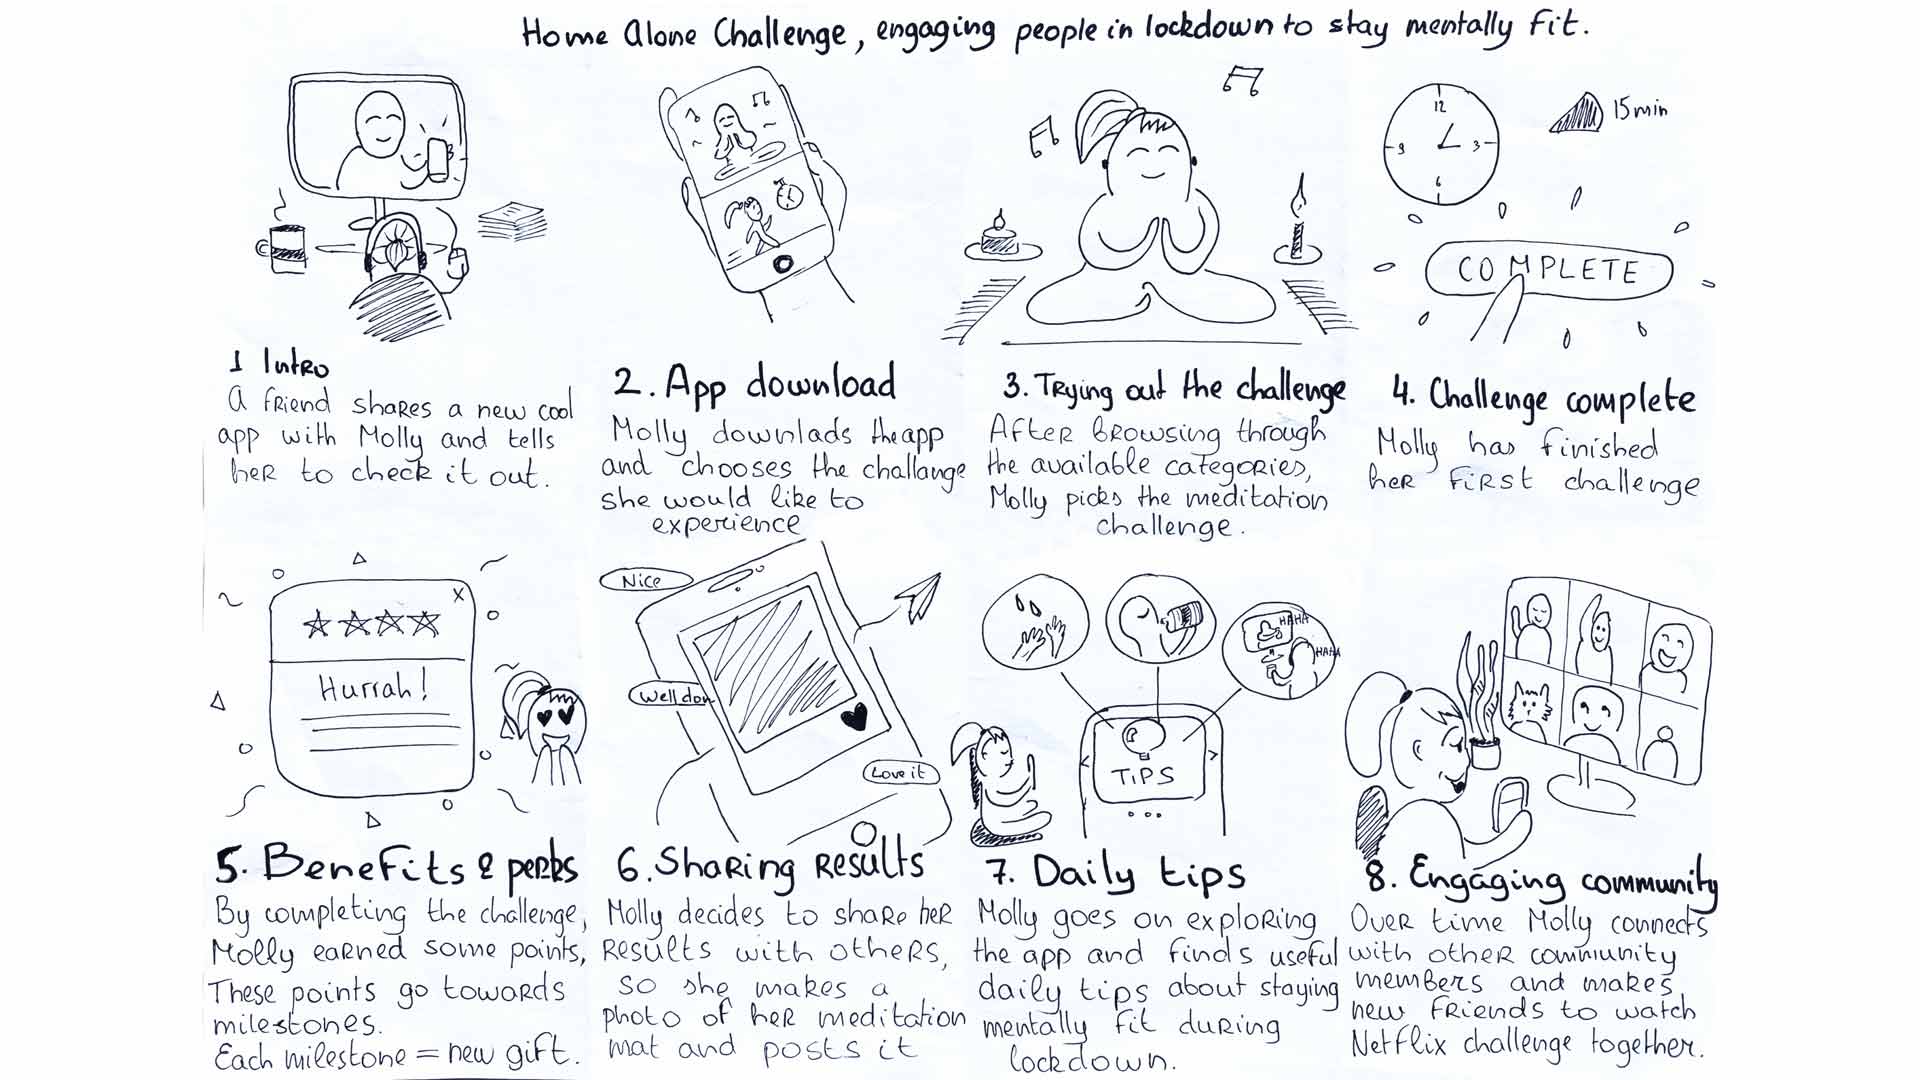 Home Alone Challenge, engaging people in lockdown to stay mentally fit.
12
3
6
9
15 min
COMPLETE
1 Intro
A friend shares a new cool
app with Molly and tells
her to check it out.
2. App download
Molly downlads the app
and chooses the challange
she would like to
experience
3. Trying out the challenge
After browsing through
the available categories,
Molly picks the meditation
challenge.
4. Challenge complete
Molly has finished
her first challenge
X
Hurrah!
Nice
Well don
Love it
HAHA
HAHA
TIPS
5. Benefits & perks
By completing the challenge,
Molly earned some points,
These points go towards
milestones.
Each milestone = new gift.
6. Sharing results
Molly decides to share her
results with others,
so she makes a
photo of her meditation
mat and posts it
7. Daily tips
Molly goes on exploring
the app and finds useful
daily tips about staying
mentally fit during
lockdown.
8. Engaging community
Over time Molly connects
with other community
members and makes
new friends to watch
Netflix challenge together.